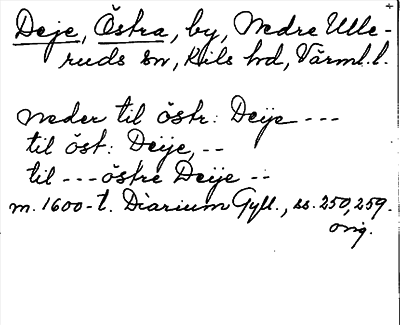 Deje, Östra, by, Nedre Ulle-
ruds sn, Kils hd, Värml. l.
neder til östr: Deije ---
til öst: Deije, --
til --- östre Deije --
m. 1600-t. Diarium Gyll., ss. 250, 259.
orig.